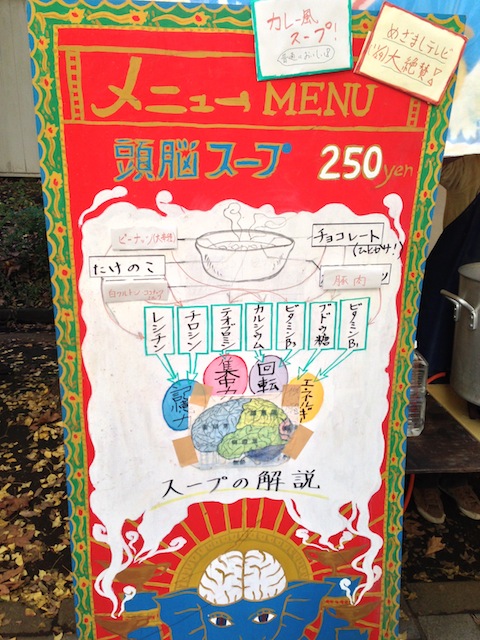 カレー風
スープ!
めざましテレビ
大絶賛!
メニュー MENU
頭脳スープ 250yen
ピーナッツ
チョコレート
(ひとかけ!
たけのこ
豚肉
白ワルトン
レシチン
チロシン
テオブロミン
カルシウム
ビタミンB₁
ブドウ糖
ビタミンB₁
記憶力
集中力
回転
エネルギー
スープの解説